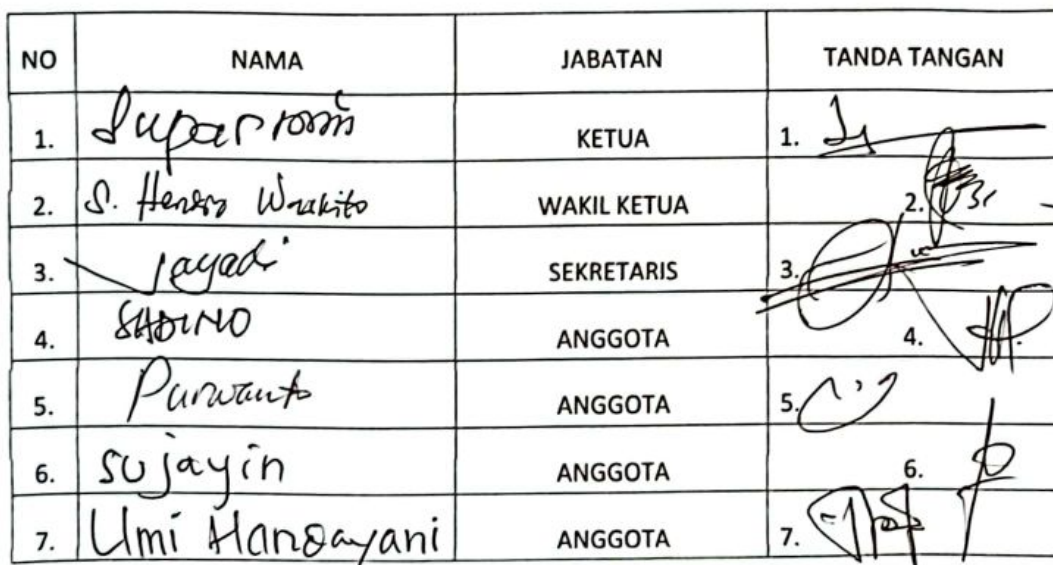 NO NAMA JABATAN TANDA TANGAN
1. KETUA 1.
2. S. WAKIL KETUA 2.
3. Jayadi SEKRETARIS 3.
4. SADINO ANGGOTA 4.
5. Purwanto ANGGOTA 5.
6. sujayin ANGGOTA 6.
7. Umi Handayani ANGGOTA 7.